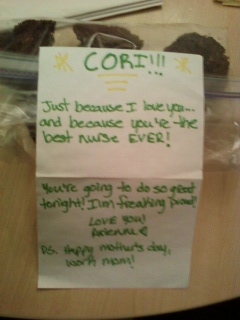 CORI!!!
Just because I love you...
and because you're the
best nurse EVER!
You're going to do so great
tonight! I'm freaking proud!
LOVE YOU!
P.S. Happy mother's day,
work mom!